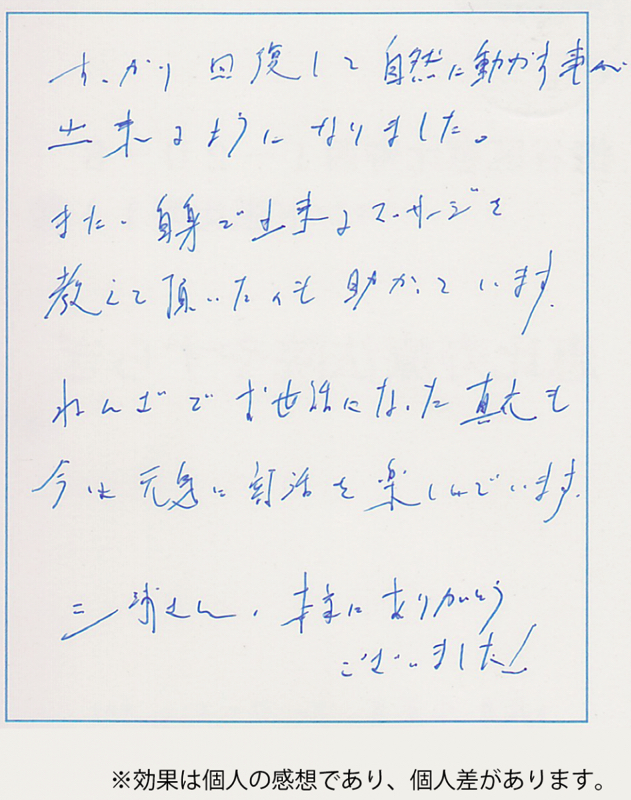 すっかり回復して自然に動かす事が
出来るようになりました。
また、自身で出来るマッサージを
教えて頂いたのも助かっています。
ねんざでお世話になった真大も
今は元気に部活を楽しんでいます。
三浦さん、本当にありがとう
ございました!
※効果は個人の感想であり、個人差があります。